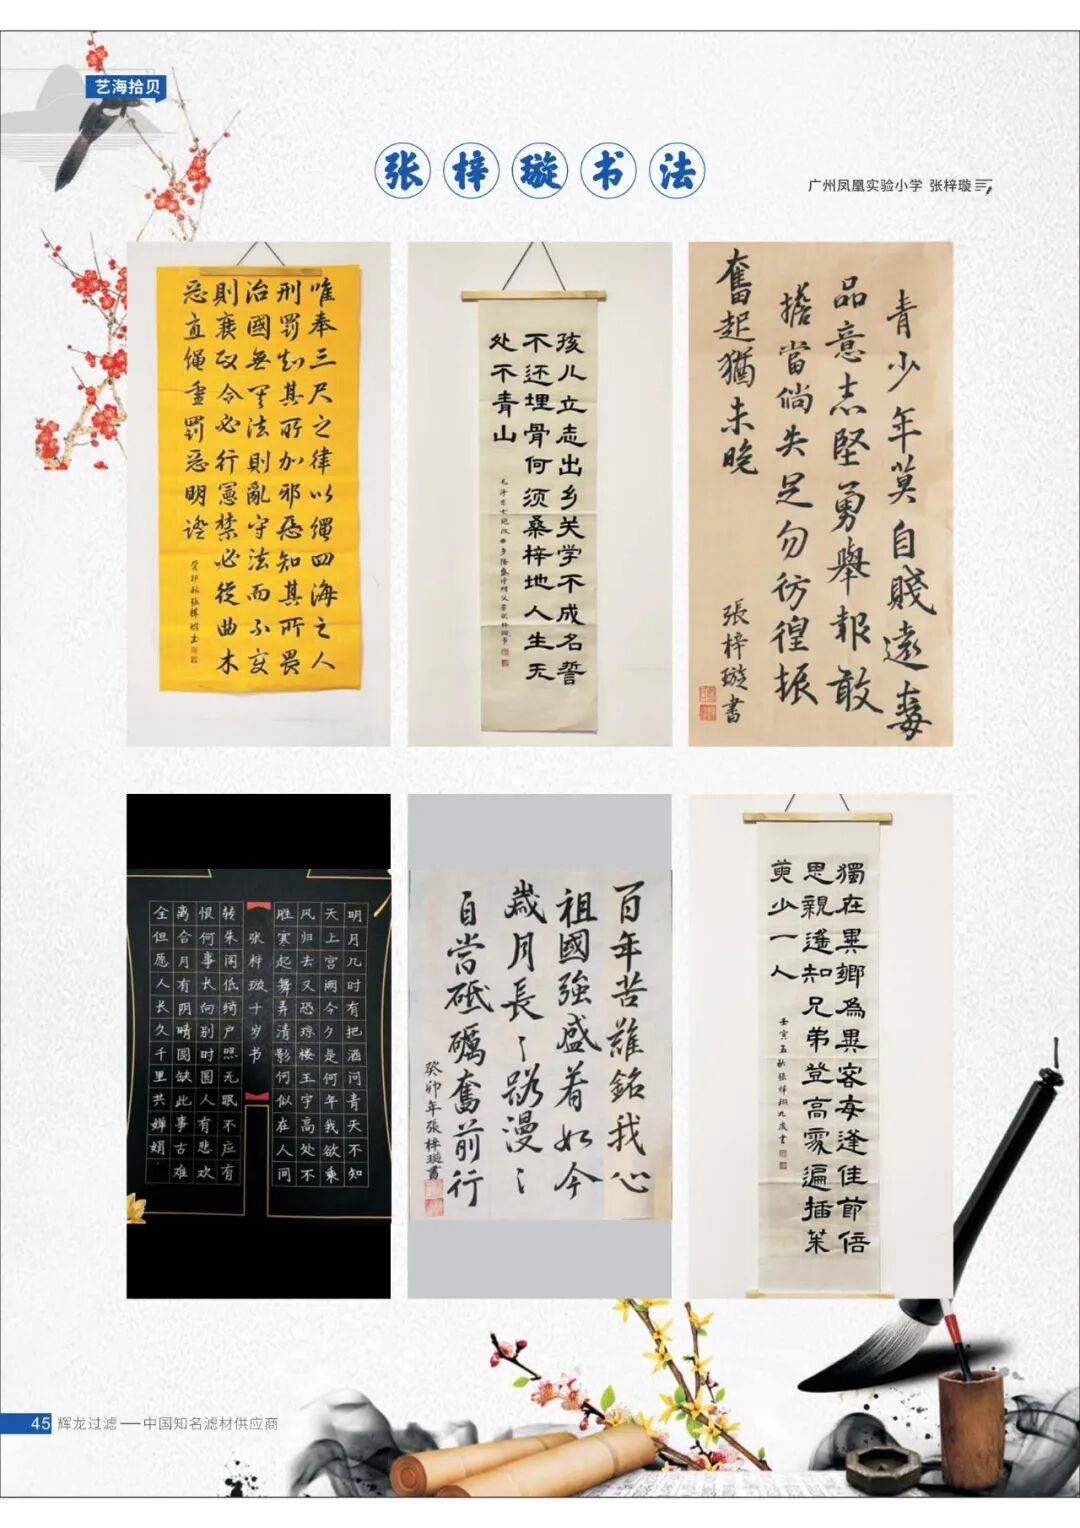 艺海拾贝
张梓璇书法
广州凤凰实验小学 张梓璇
唯奉三尺之律以绳四海之人
刑罰知其所加邪惡知其所畏
治國無法則亂守法而不变
則衰政令必行憲禁必從曲木
惡直绳重罰惡明證
癸卯秋張梓璇书
孩儿立志出乡关学不成名誓
不还埋骨何须桑梓地人生无
处不青山
青少年莫自賤遠毒
品意志堅勇舉報敢
擔當倘失足勿彷徨振
奮起猶未晚
張梓璇書
明月几时有把酒问青天不知
天上宫阙今夕是何年我欲乘
风归去又恐琼楼玉宇高处不
胜寒起舞弄清影何似在人间
张梓璇十岁书
转朱阁低绮户照无眠不应有
恨何事长向别时圆人有悲欢
离合月有阴晴圆缺此事古难
全但愿人长久千里共婵娟
百年苦難銘我心
祖國強盛看如今
歲月長長路漫漫
自當砥礪奮前行
癸卯年張梓璇書
獨在異鄉為異客每逢佳節倍
思親遙知兄弟登高處遍插茱
萸少一人
壬寅孟秋張梓璇九歲書
45 辉龙过滤——中国知名滤材供应商